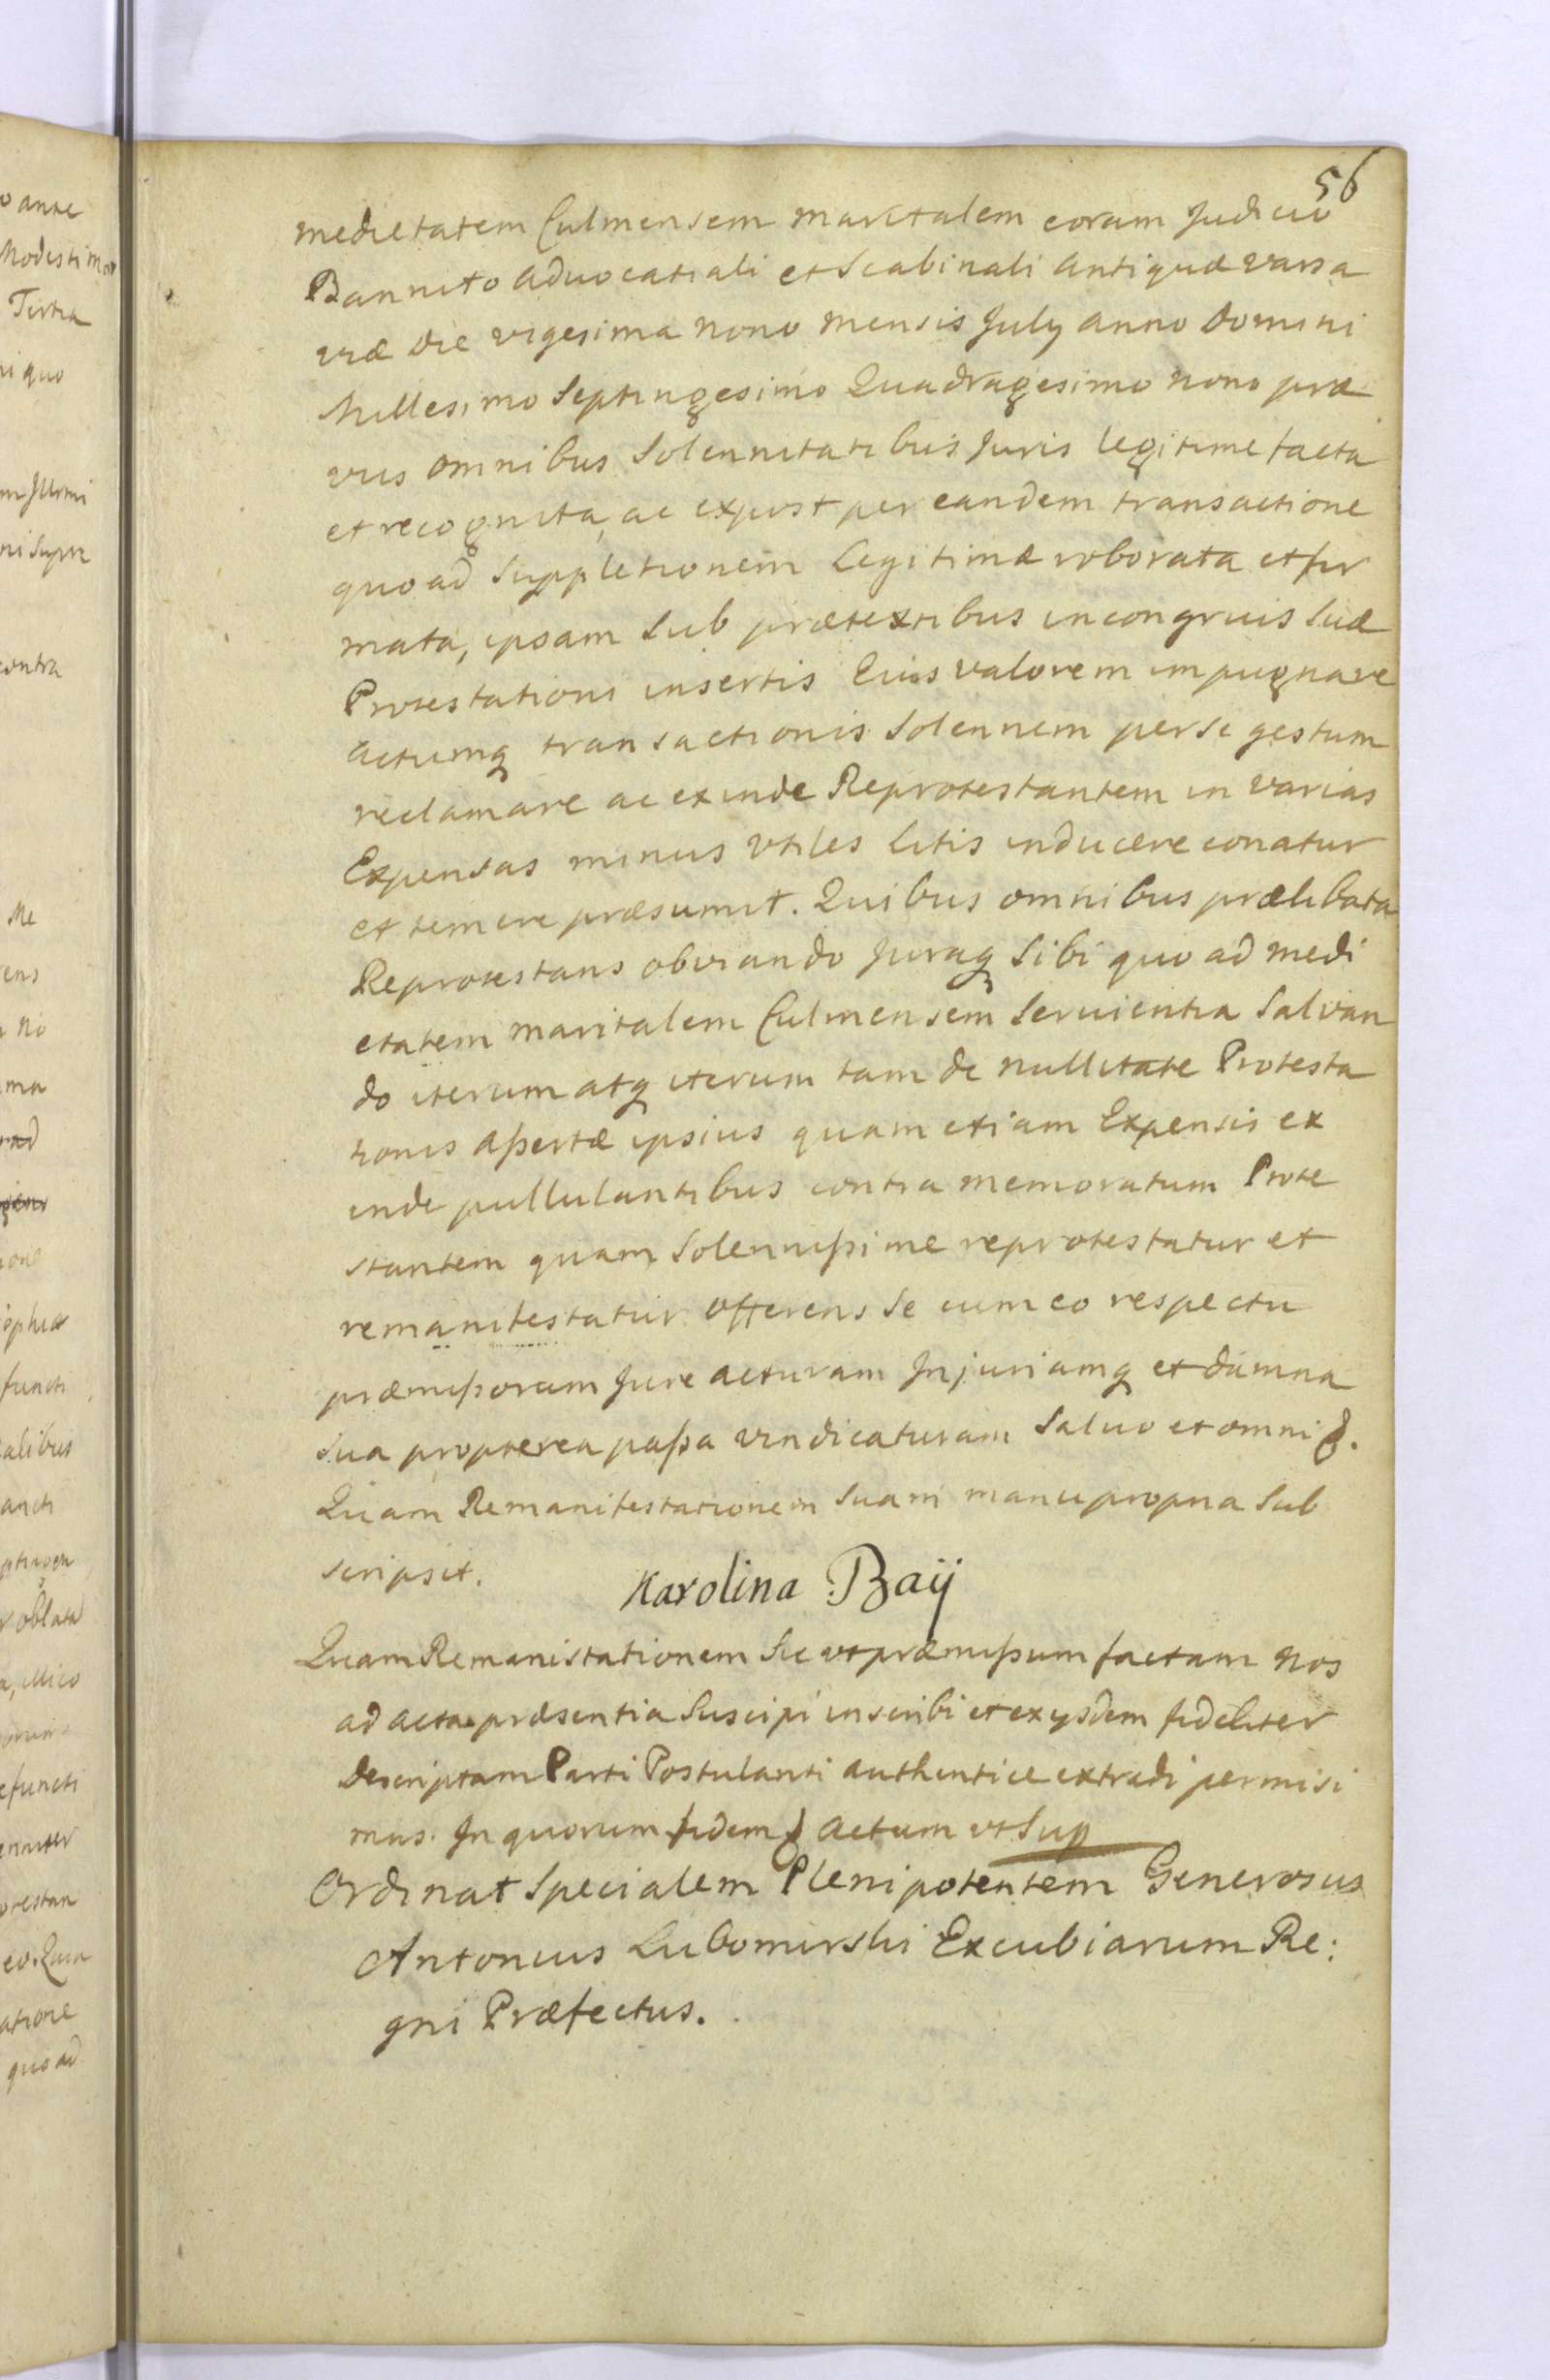 56
medietatem Culmensem maritalem coram Judicio
Bannito Aduocatiali et Scabinali Antiquæ Varsa
viæ Die vigesima Nono Mensis July Anno Domini
Millesimo Septingesimo Quadragesimo Nono præ
viis omnibus Solennitatibus Juris legitime facta
et recognita, ac expost per eandem transactione
quoad Suppletionem Legitimæ roborata et fir
mata, ipsam Sub prætextibus incongruis Suæ
Protestationi insertis Eius valorem impugnare
actumq transactionis Solennem per Se gestum
reclamare ac exinde Reprotestantem in varias
Expensas minus Vtiles Litis inducere conatur
et temere præsumit. Quibus omnibus prælibata
Reprotestans obviando Juraq Sibi quo ad medi
etatem maritalem Culmensem Seruientia Salvan
do iterum atq iterum tam de Nullitate Protesta
tionis Assertæ ipsius quam etiam Expensis ex
inde pullulantibus contra memoratum Prote
stantem quam Solennissime reprotestatur et
remanifestatur offerens Se cum eo respectu
præmissorum Jure acturam Injuriamq et damna
Sua propterea passa vindicaturam Saluo et omni
Quam Remanifestationem Suam manu propria Sub
scripsit.
Karolina Baij
Quam Remanistationem Sic vt præmissum factam Nos
ad acta præsentia Suscipi inscribi et ex ysdem fideliter
Descriptam Parti Postulanti authentice extradi permisi
mus. In quorum fidem Actum vt Sup
Ordinat Specialem Plenipotentem Generosus
Antonius Lubomirski Excubiarum Re:
gni Præfectus.
o ante
Modesti
Tertia
ni quo
contra
Me
rens
ma
functi
alibus
oblata
efuncti
atione
quo ad